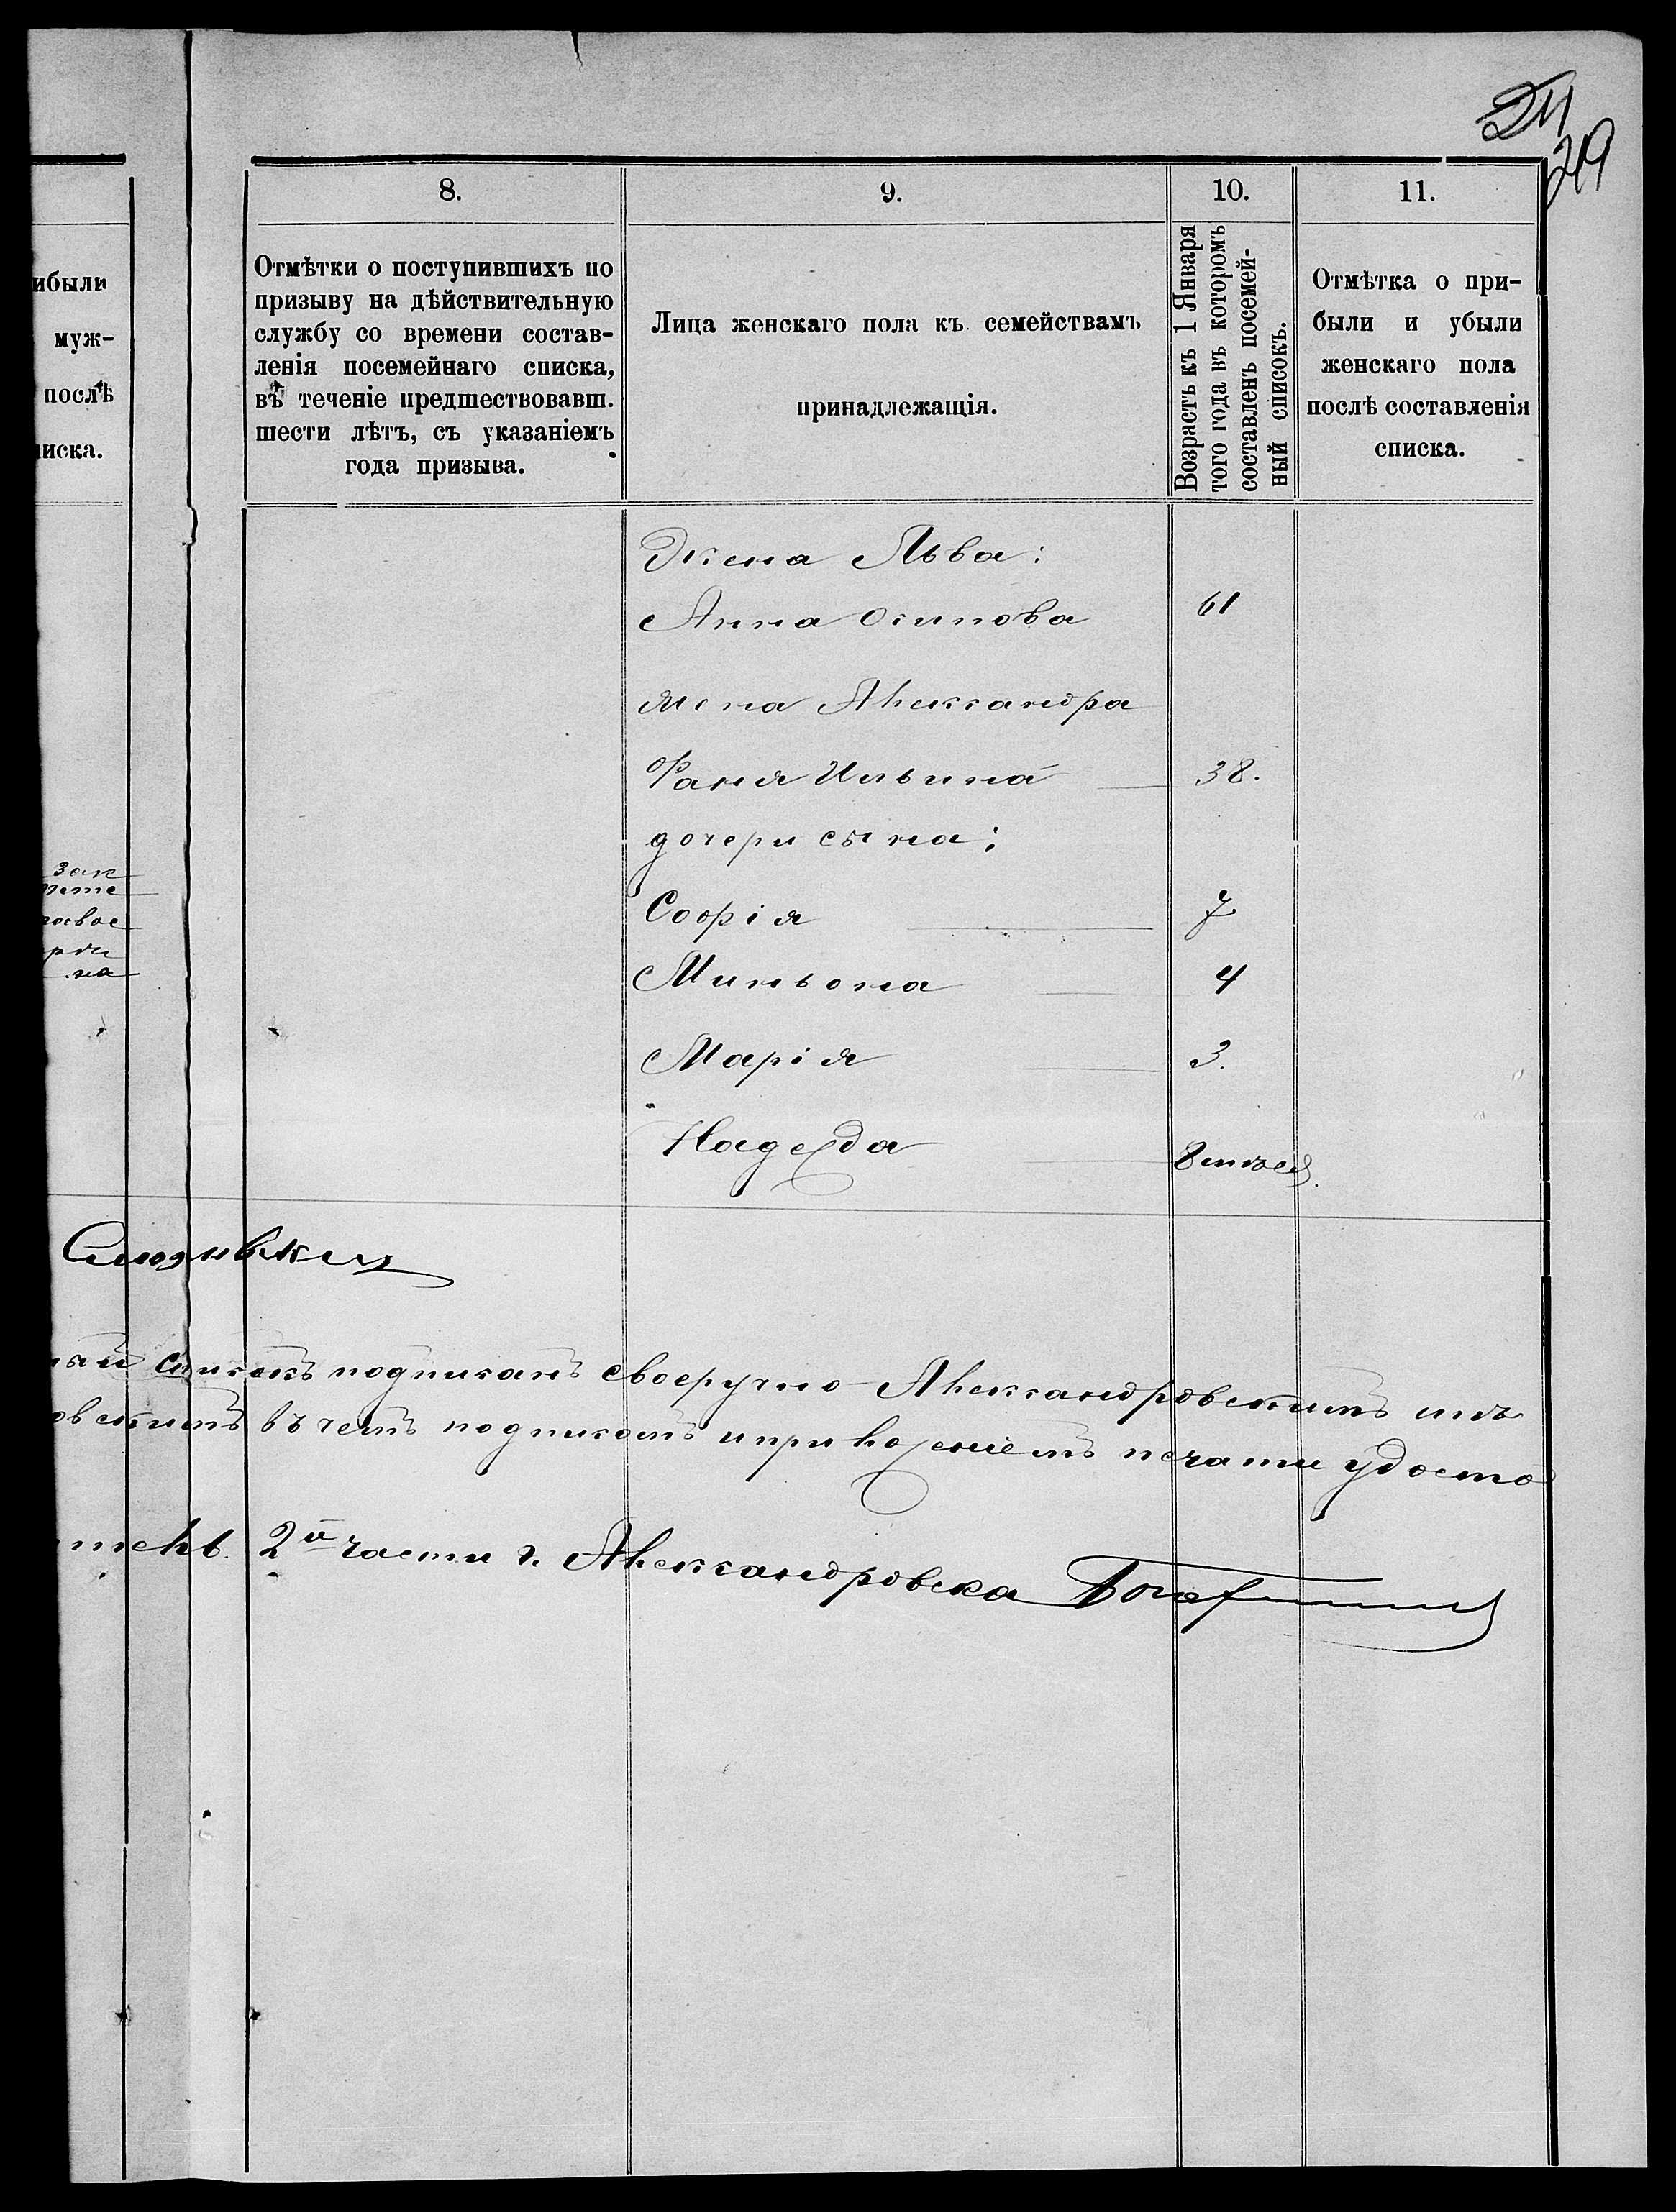 24
249
8.
9.
10.
11.
ибыли
муж-
послѣ
писка.
Отмѣтки о поступившихъ по
призыву на дѣйствительную
службу со времени состав-
ленія посемейнаго списка,
въ теченіе предшествовавш.
шести лѣтъ, съ указаніемъ
года призыва.
Лица женскаго пола къ семействамъ
принадлежащія.
Возрастъ къ 1 Января
того года въ которомъ
составленъ посемей-
ный списокъ.
Отмѣтка о при-
были и убыли
женскаго пола
послѣ составленія
списка.
Жена Льва:
Анна Осипова 61
жена Александра
Фаня Ильина 38.
дочери сына:
Софія 7
Миньона 4
Марія 3.
Надежда 8 мѣсяц.
зак
на
ный списокъ подписанъ своеручно Александровскимъ мѣ
овскимъ въ чемъ подписомъ и приложеніемъ печати удосто
тель 2й части г. Александровска